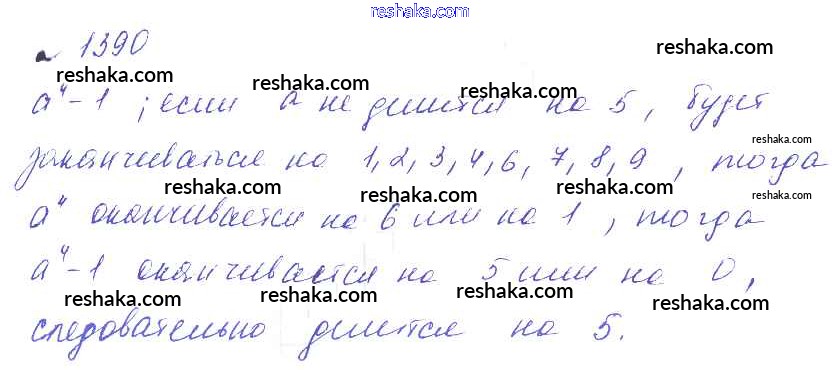 www.reshaka.com
№ 1390
reshaka.com
reshaka.com
reshaka.com
reshaka.com
a⁴-1 ; если a не делится на 5, будет
reshaka.com
заканчиваться на 1, 2, 3, 4, 6, 7, 8, 9, тогда
reshaka.com
reshaka.com
reshaka.com
a⁴ оканчивается на 6 или на 1, тогда
reshaka.com
a⁴-1 оканчивается на 5 или на 0,
reshaka.com
reshaka.com
reshaka.com
reshaka.com
следовательно делится на 5.